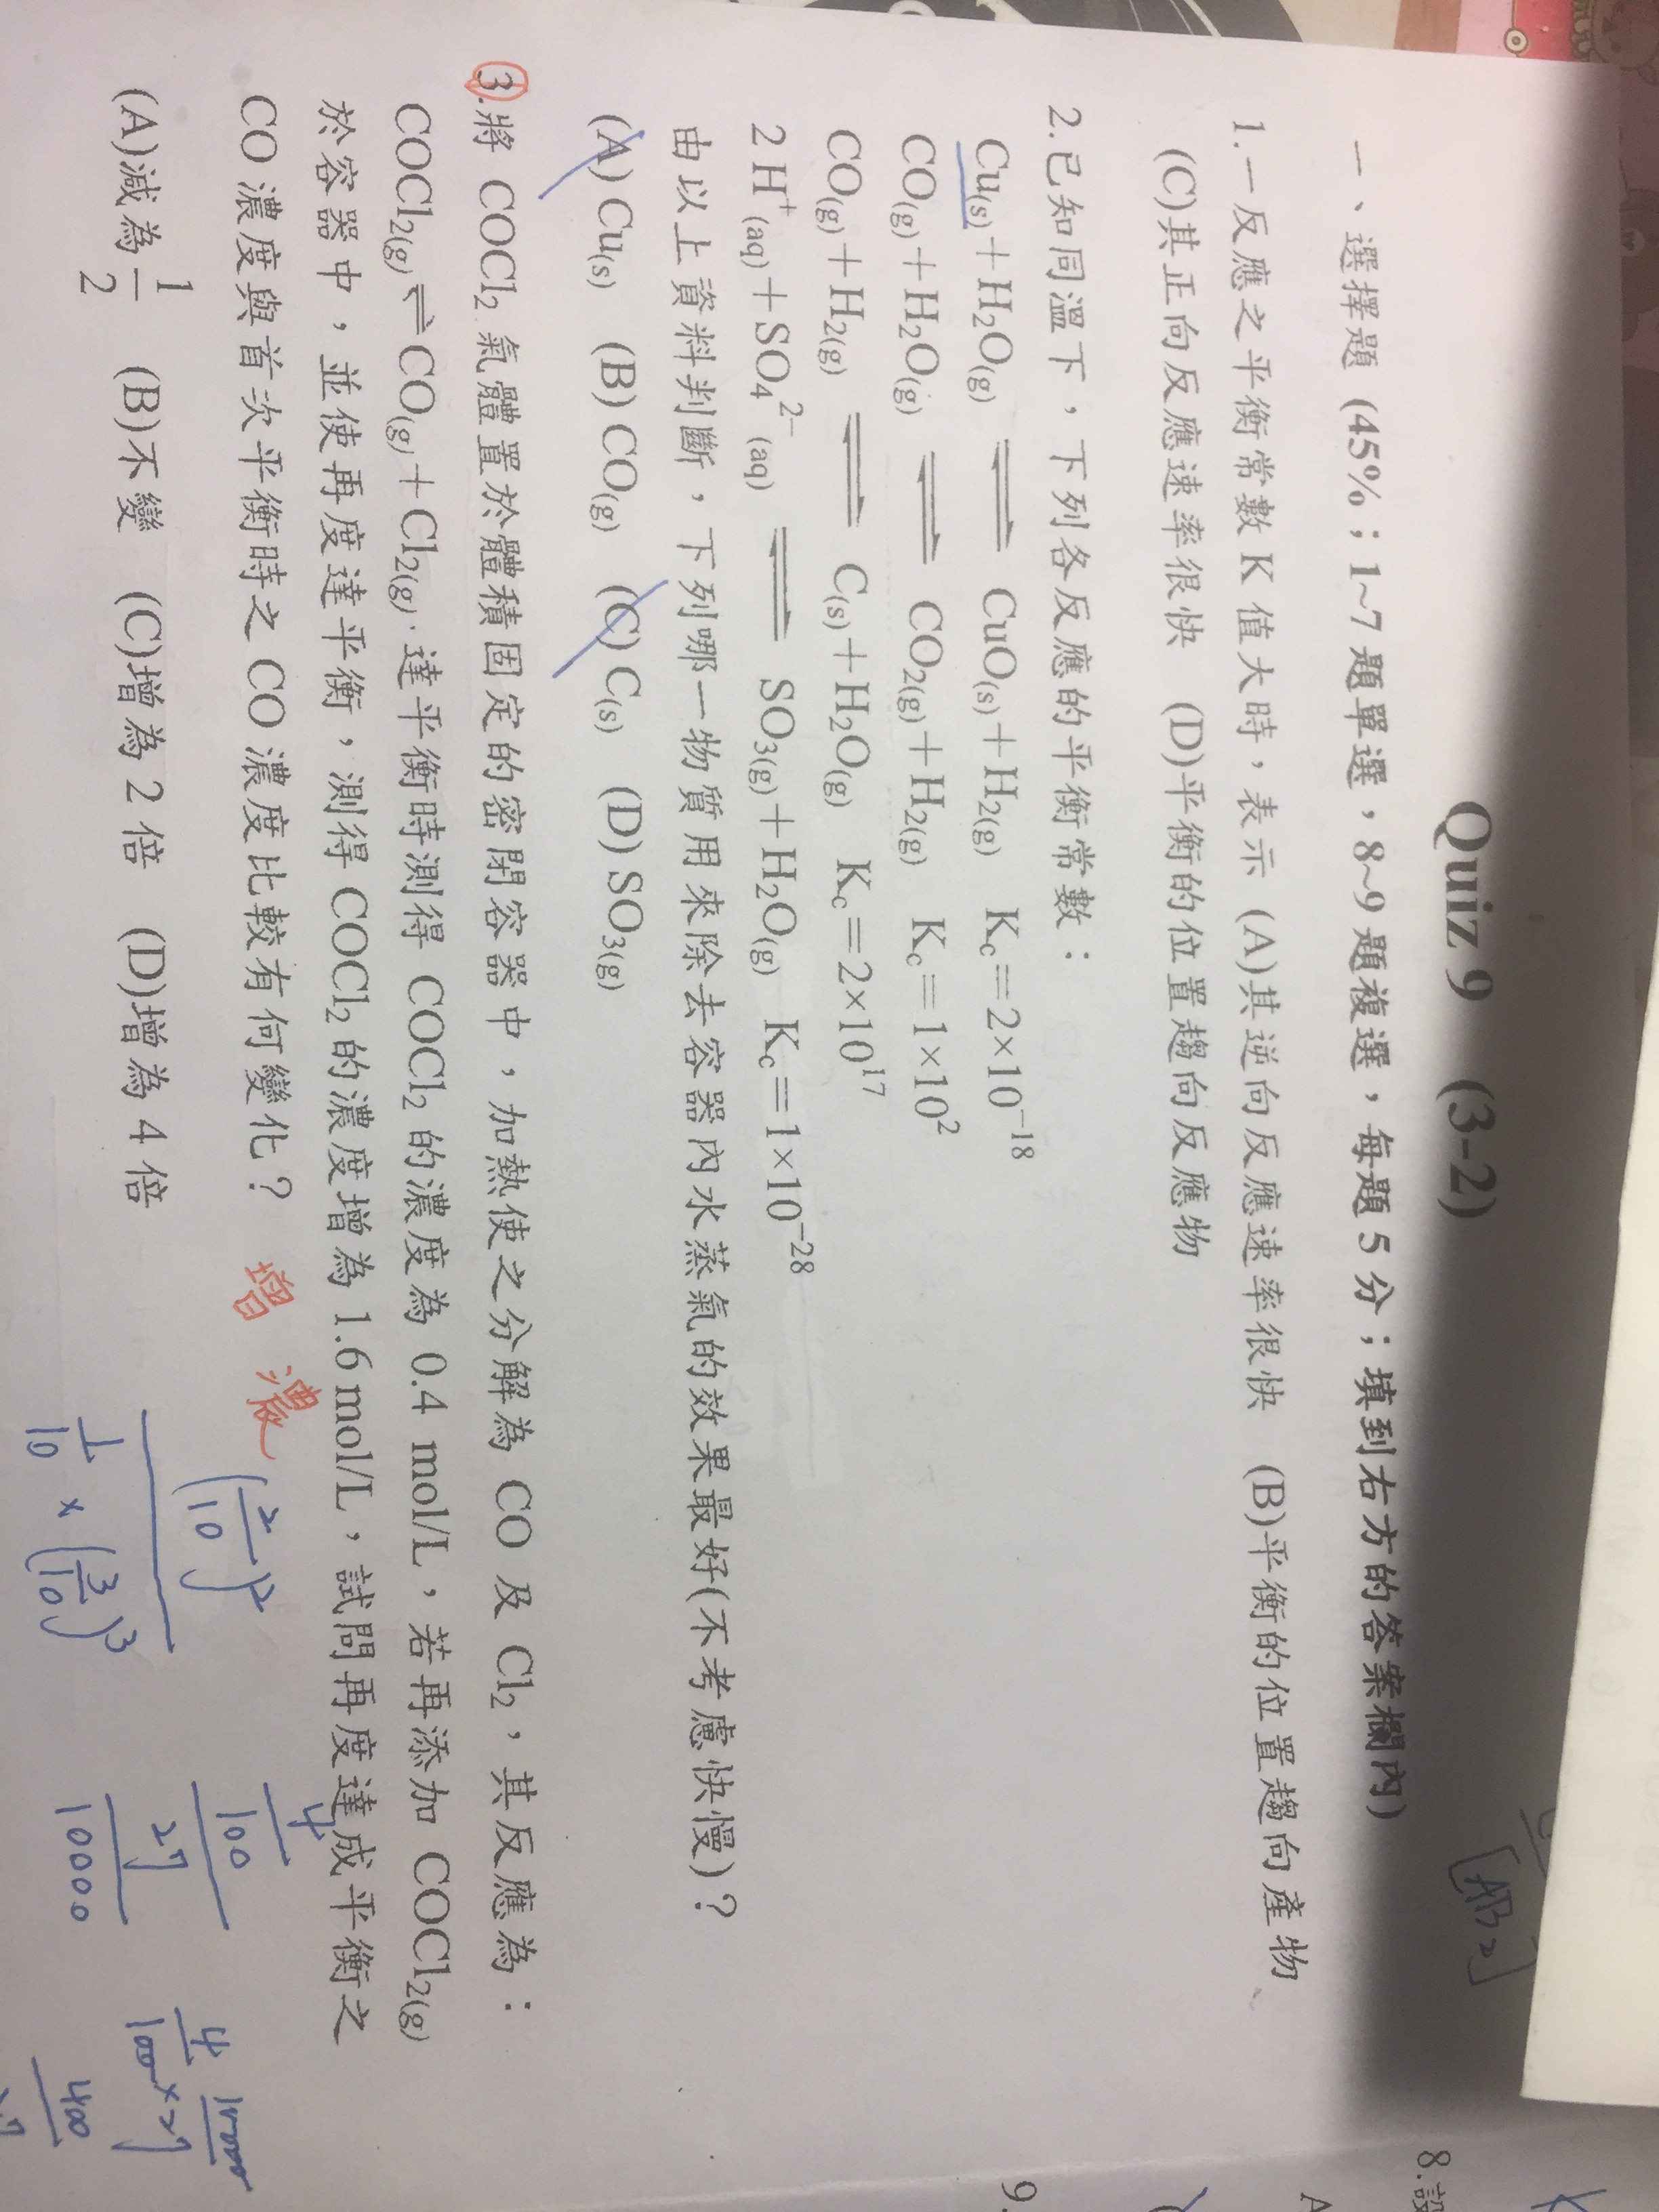 Quiz 9 (3-2)
一、選擇題 (45%；1~7 題單選，8~9 題複選，每題 5 分；填到右方的答案欄內)
1.一反應之平衡常數 K 值大時，表示 (A)其逆向反應速率很快 (B)平衡的位置趨向產物
(C)其正向反應速率很快 (D)平衡的位置趨向反應物
2.已知同溫下，下列各反應的平衡常數：
Cu(s)＋H₂O(g) ⇌ CuO(s)＋H₂(g) Kc＝2×10⁻¹⁸
CO(g)＋H₂O(g) ⇌ CO₂(g)＋H₂(g) Kc＝1×10²
CO(g)＋H₂(g) ⇌ C(s)＋H₂O(g) Kc＝2×10¹⁷
2 H⁺(aq)＋SO₄²⁻(aq) ⇌ SO₃(g)＋H₂O(g) Kc＝1×10⁻²⁸
由以上資料判斷，下列哪一物質用來除去容器內水蒸氣的效果最好(不考慮快慢)？
(A) Cu(s) (B) CO(g) (C) C(s) (D) SO₃(g)
3.將 COCl₂ 氣體置於體積固定的密閉容器中，加熱使之分解為 CO 及 Cl₂，其反應為：
COCl₂(g)⇌CO(g)＋Cl₂(g)，達平衡時測得 COCl₂ 的濃度為 0.4 mol/L，若再添加 COCl₂(g)
於容器中，並使再度達平衡，測得 COCl₂ 的濃度增為 1.6 mol/L，試問再度達成平衡之
CO 濃度與首次平衡時之 CO 濃度比較有何變化？ 增 濃
(A)減為 1/2 (B)不變 (C)增為 2 倍 (D)增為 4 倍
(2/10)²
1/10 × (3/10)³
4
100
27
10000
4
100
×
10000
27
400
[AB₂]
8.設
A
9.